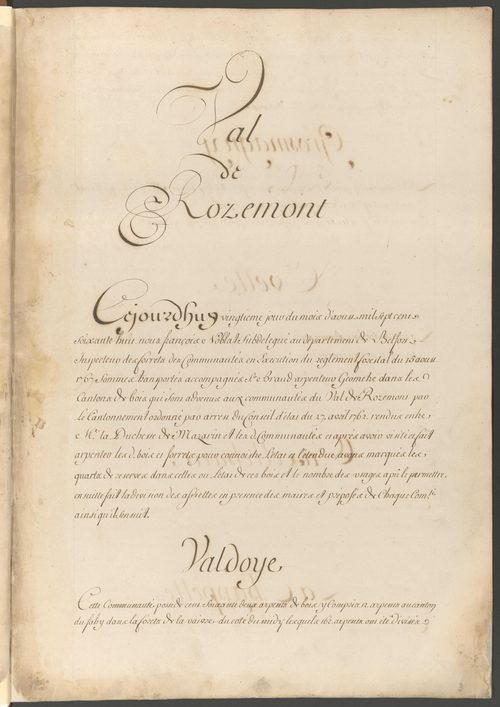 Val
de
Rozemont
Cejourdhuy vingtieme jour du mois d'aoust mil sept cent
soixante huit nous françois Noblat Subdelegué au departement de Belfort
Inspecteur des forets des Communautés en Execution du reglement forestal du 13 aoust
1767 Sommes transportés accompagnés Sr Braud arpenteur Geometre dans les
Cantons de bois qui sont advenus aux communautés du Val de Rozemont par
le Cantonnement ordonné par arrest du Conseil d'etat du 27 avril 1762 rendus entre
Me la Duchesse de Mazarin et les d Communautés et après avoir visité et fait
arpenter les d. bois et forrets pour connoitre l'etat et l'etendue avons marqués les
quarts de reserves dans celles ou l'etat de ces bois et le nombre des usages a pû le permettre
ensuitte fait la division des assiettes en presence des maires et preposés de Chaque Comté
ainsi qu'il ensuit.
Valdoye
Cette Communauté possede cent soixante deux arpents de bois y compris arpents au canton
du faby dans la foret de la vaivre du coté du midy lesquels 162 arpents ont été divisés